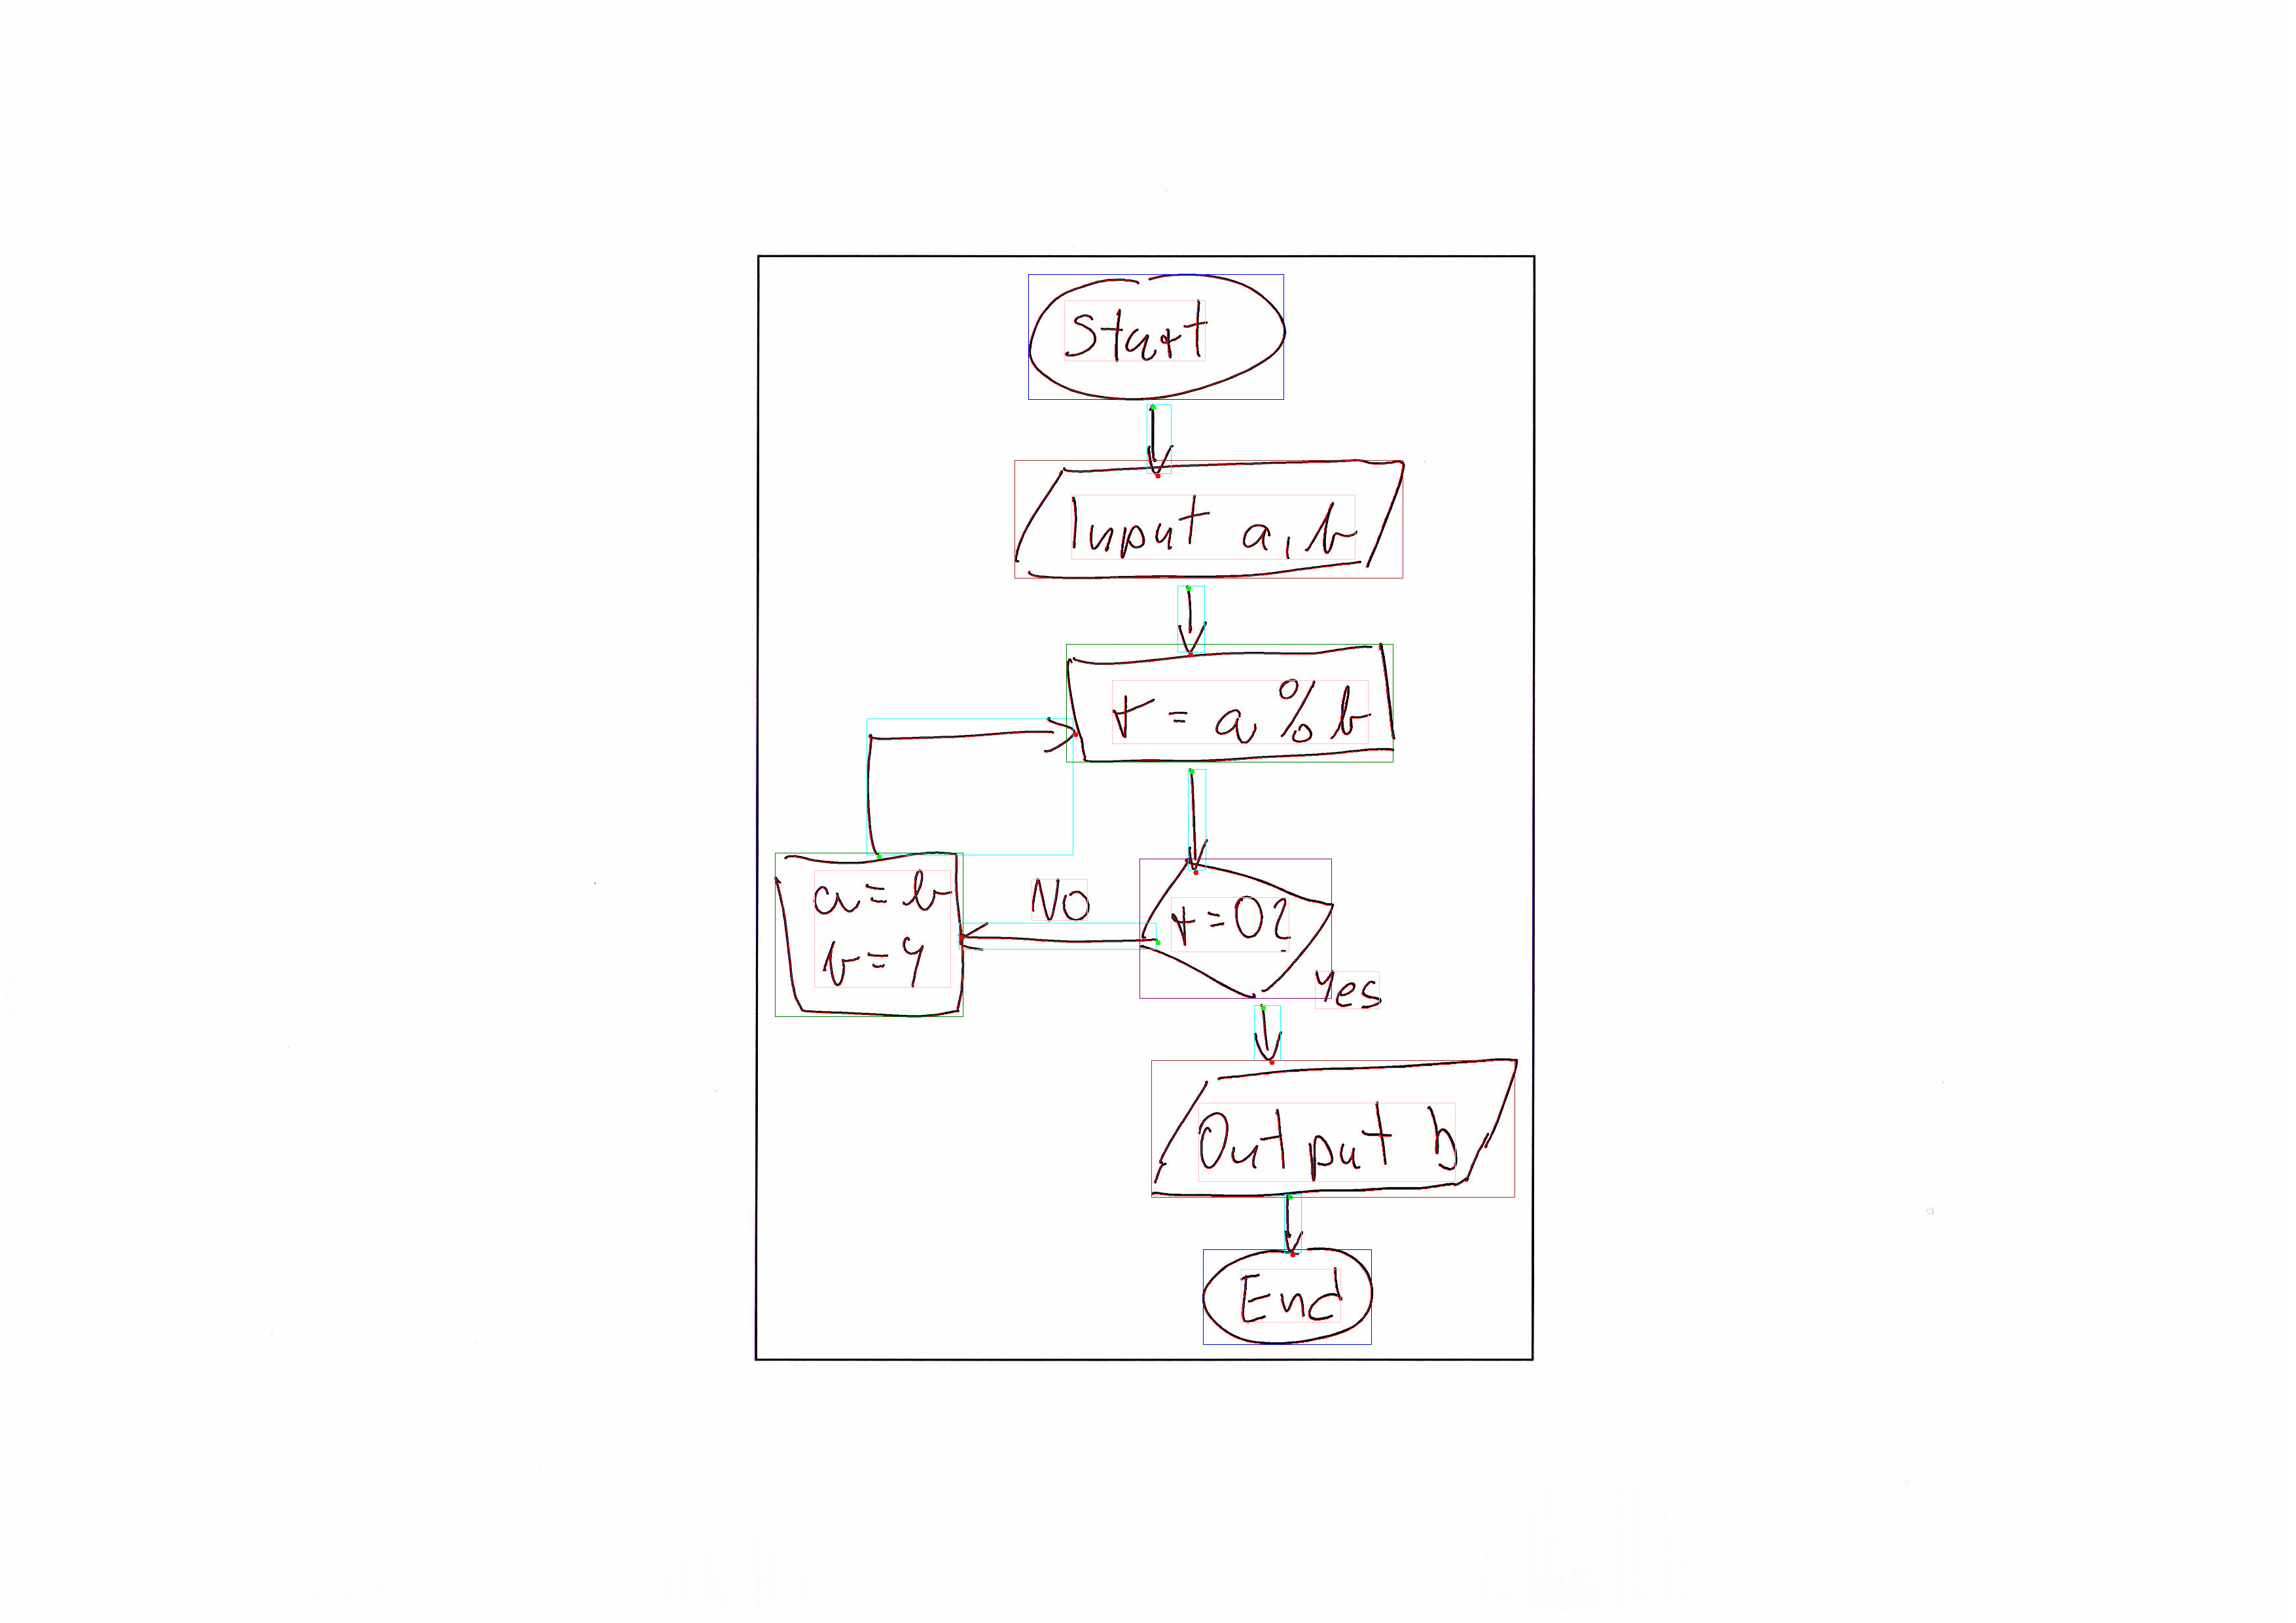 Start
Input a, b
r = a % b
No
a = b
b = r
r = 0?
Yes
Output b
End